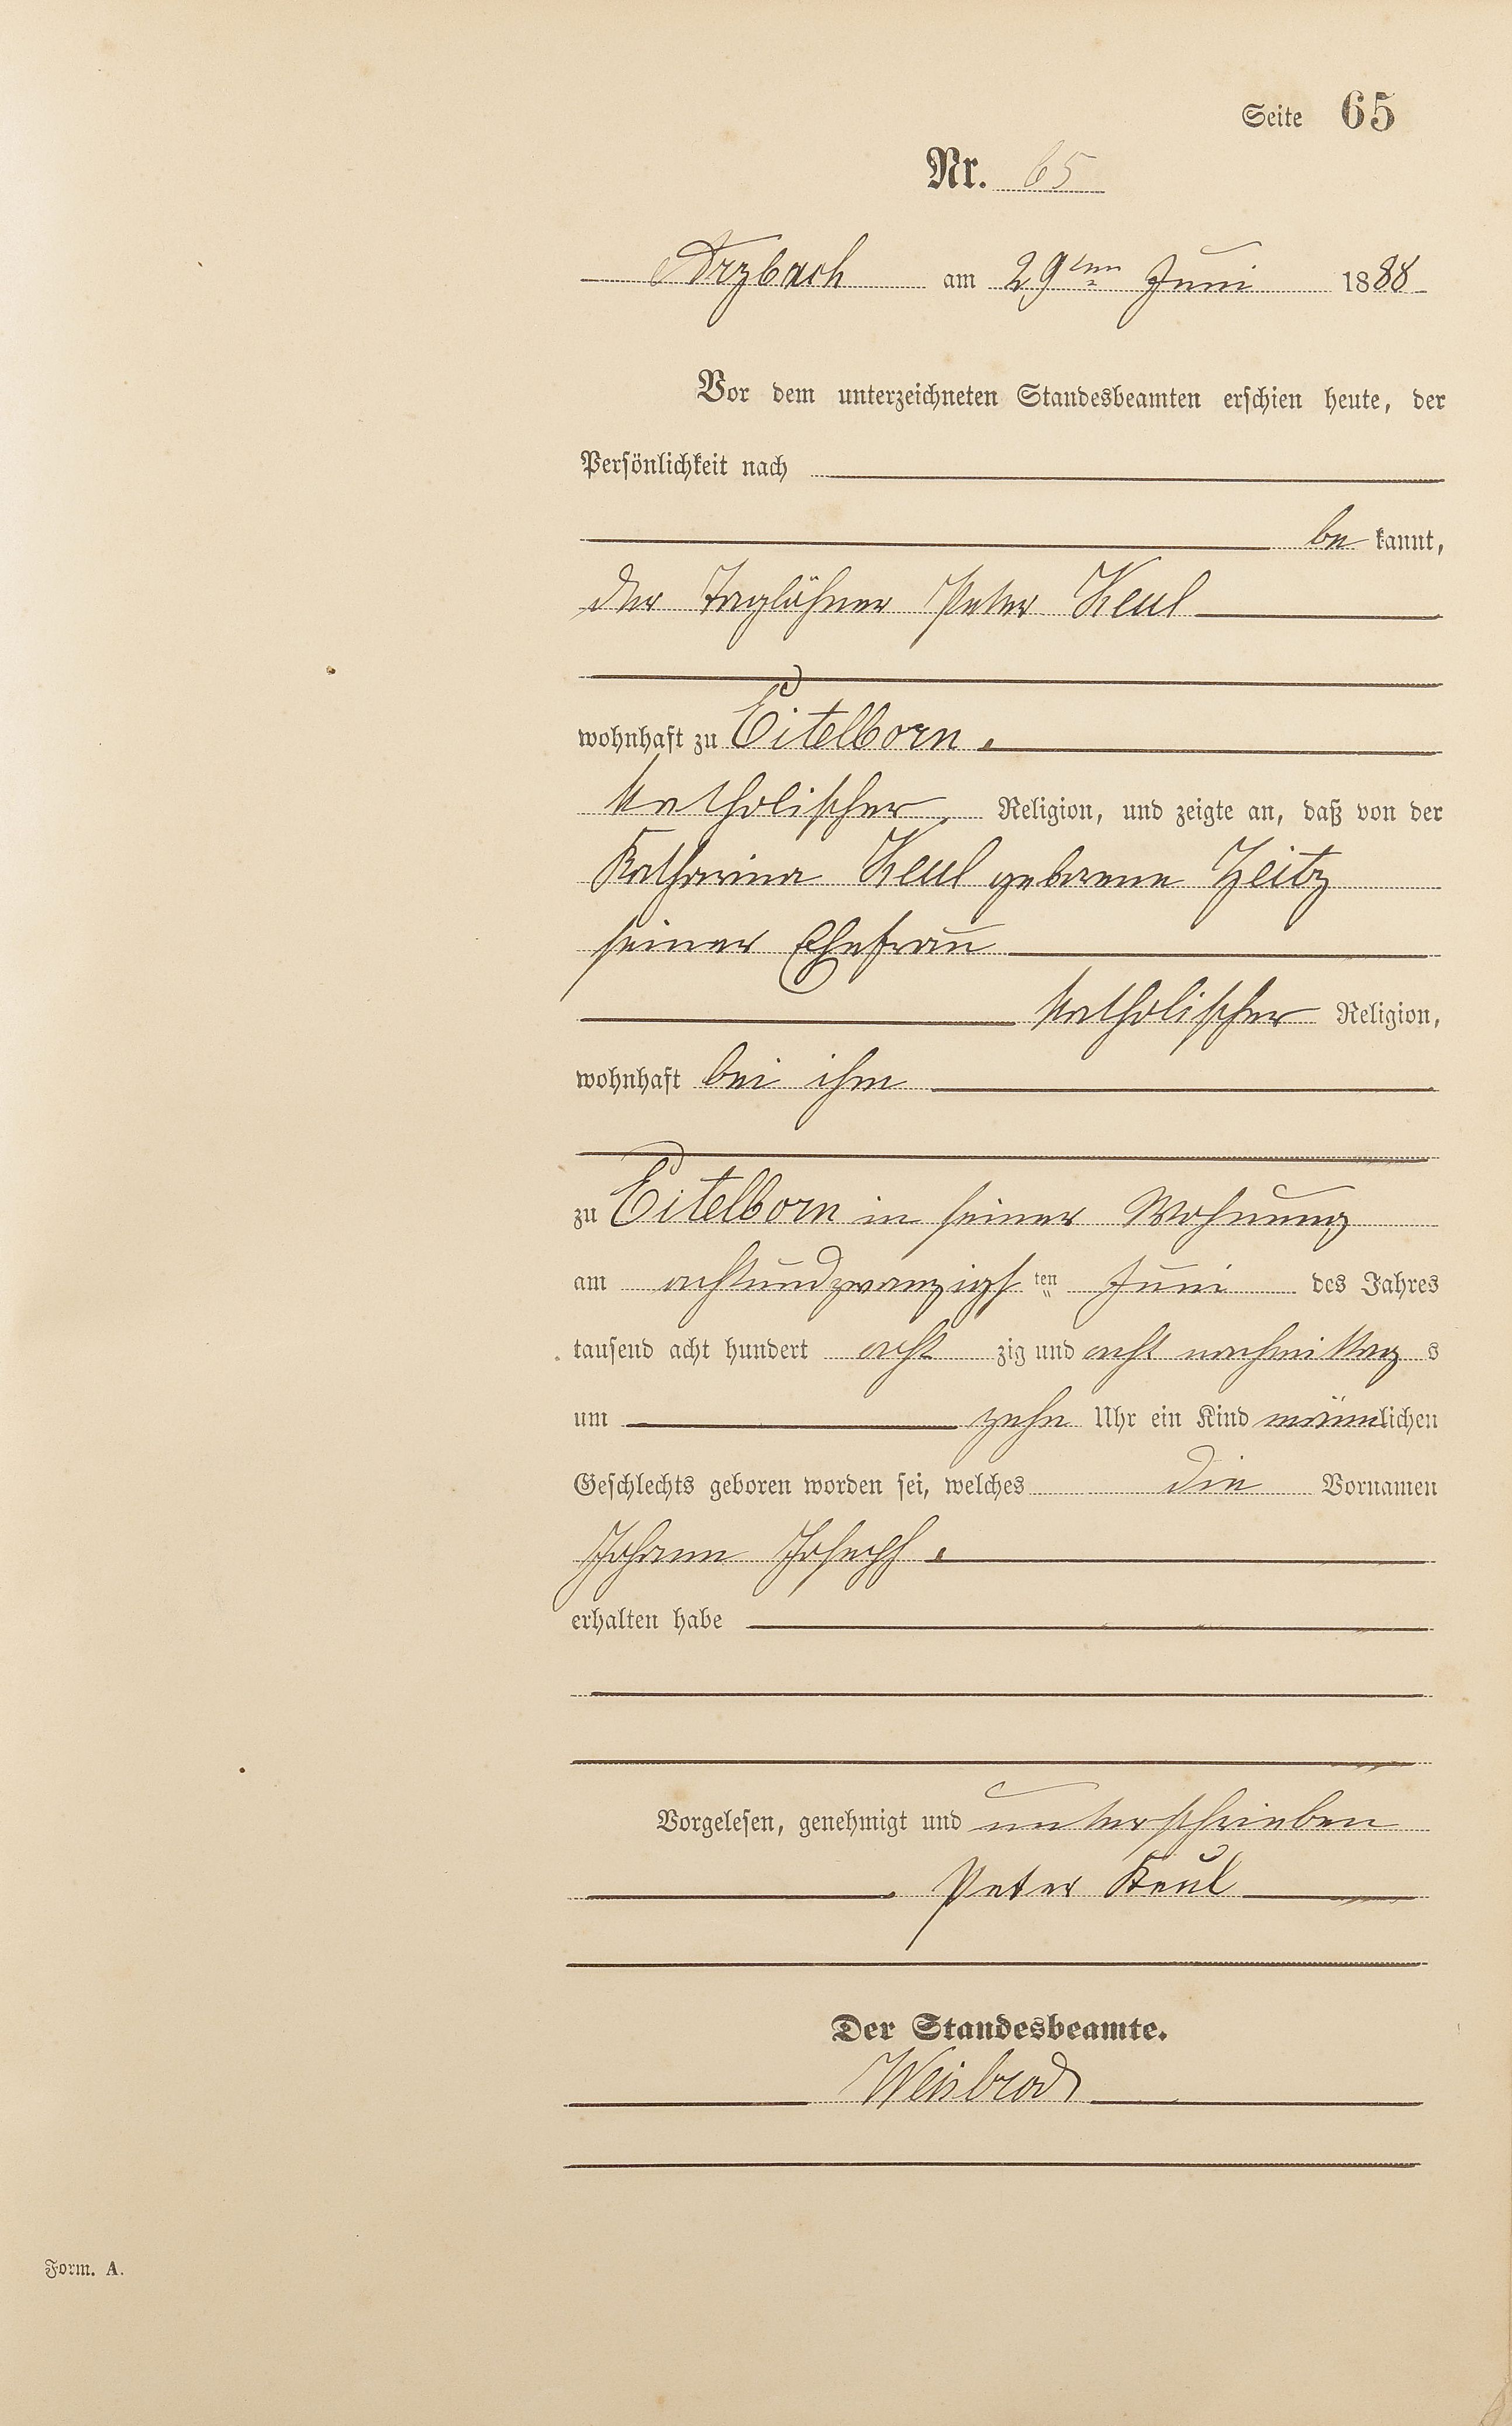 Seite 65
Nr. 65
Arzbach am 29ten Juni 1888
Vor dem unterzeichneten Standesbeamten erschien heute, der
Persönlichkeit nach
be kannt,
der Taglöhner Peter Keul
wohnhaft zu Eitelborn.
katholischer Religion, und zeigte an, daß von der
Katharina Keul geborene Zeitz
seiner Ehefrau
katholischer Religion,
wohnhaft bei ihm
zu Eitelborn in seiner Wohnung
am achtundzwanzigs ten Juni des Jahres
tausend acht hundert acht zig und acht nachmittag s
um zehn Uhr ein Kind männlichen
Geschlechts geboren worden sei, welches die Vornamen
Johann Joseph.
erhalten habe
Vorgelesen, genehmigt und unterschrieben
Peter Keul
Der Standesbeamte.
Weisbrod
Form. A.